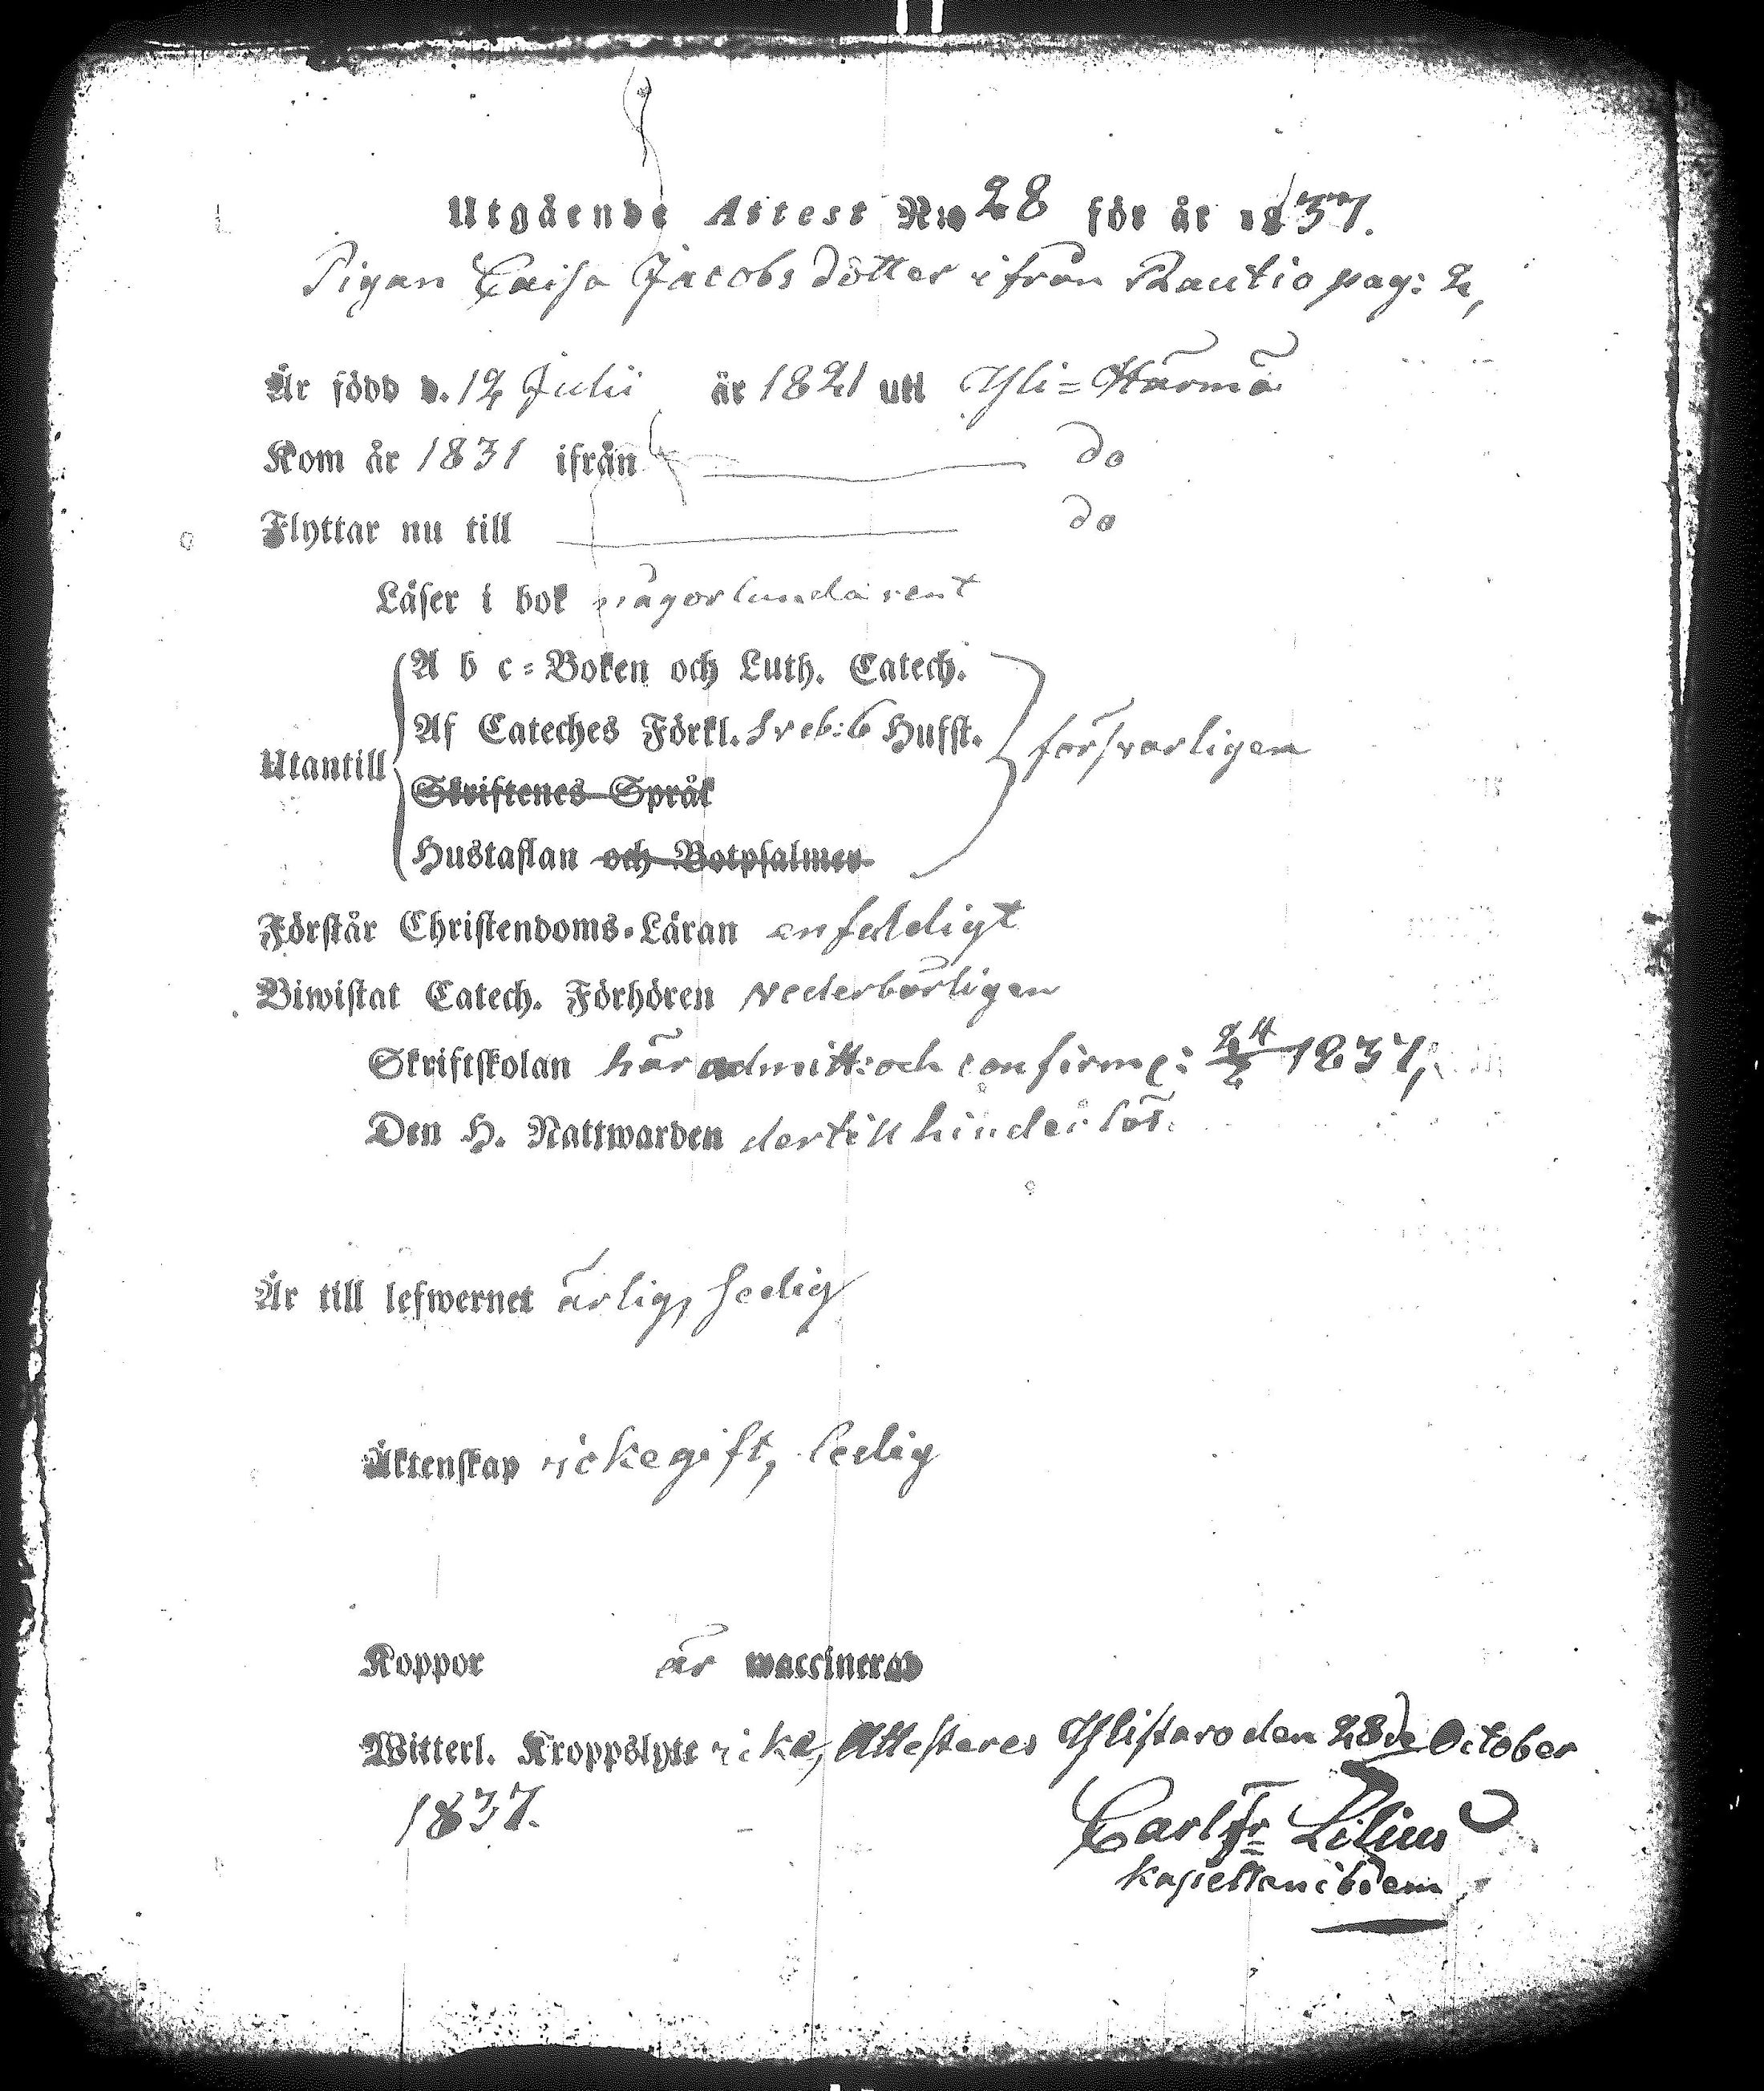 Utgående Attest N:o 28 för år 1837.
Pigan Caisa Jacobsdotter ifrån Rautio pag: 2,
Är född d. 12 Julii år 1821 uti Yli-Härmä
Kom år 1831 ifrån do
Flyttar nu till do
Läser i bok någorlunda rent
A b c-Boken och Luth. Catech.
Af Cateches Förkl. Sveb: 6 Hufst. försvarligen
Utantill
Skriftenes Språk
Hustaflan och Botpsalmer
Förstår Christendoms-Läran enfaldigt
Biwistat Catech. Förhören vederbörligen
Skriftskolan här admitt: och confirme: 24/6 1837,
Den H. Nattwarden dertill hinderlös.
Är till lefwernet ärlig, sedig
Äktenskap icke gift, ledig
Koppor är waccinerad
Witterl. Kroppslyte icke, Attesteres Ylistaro den 28de October
1837.
Carl Fr Lilius
kapellan ibidem